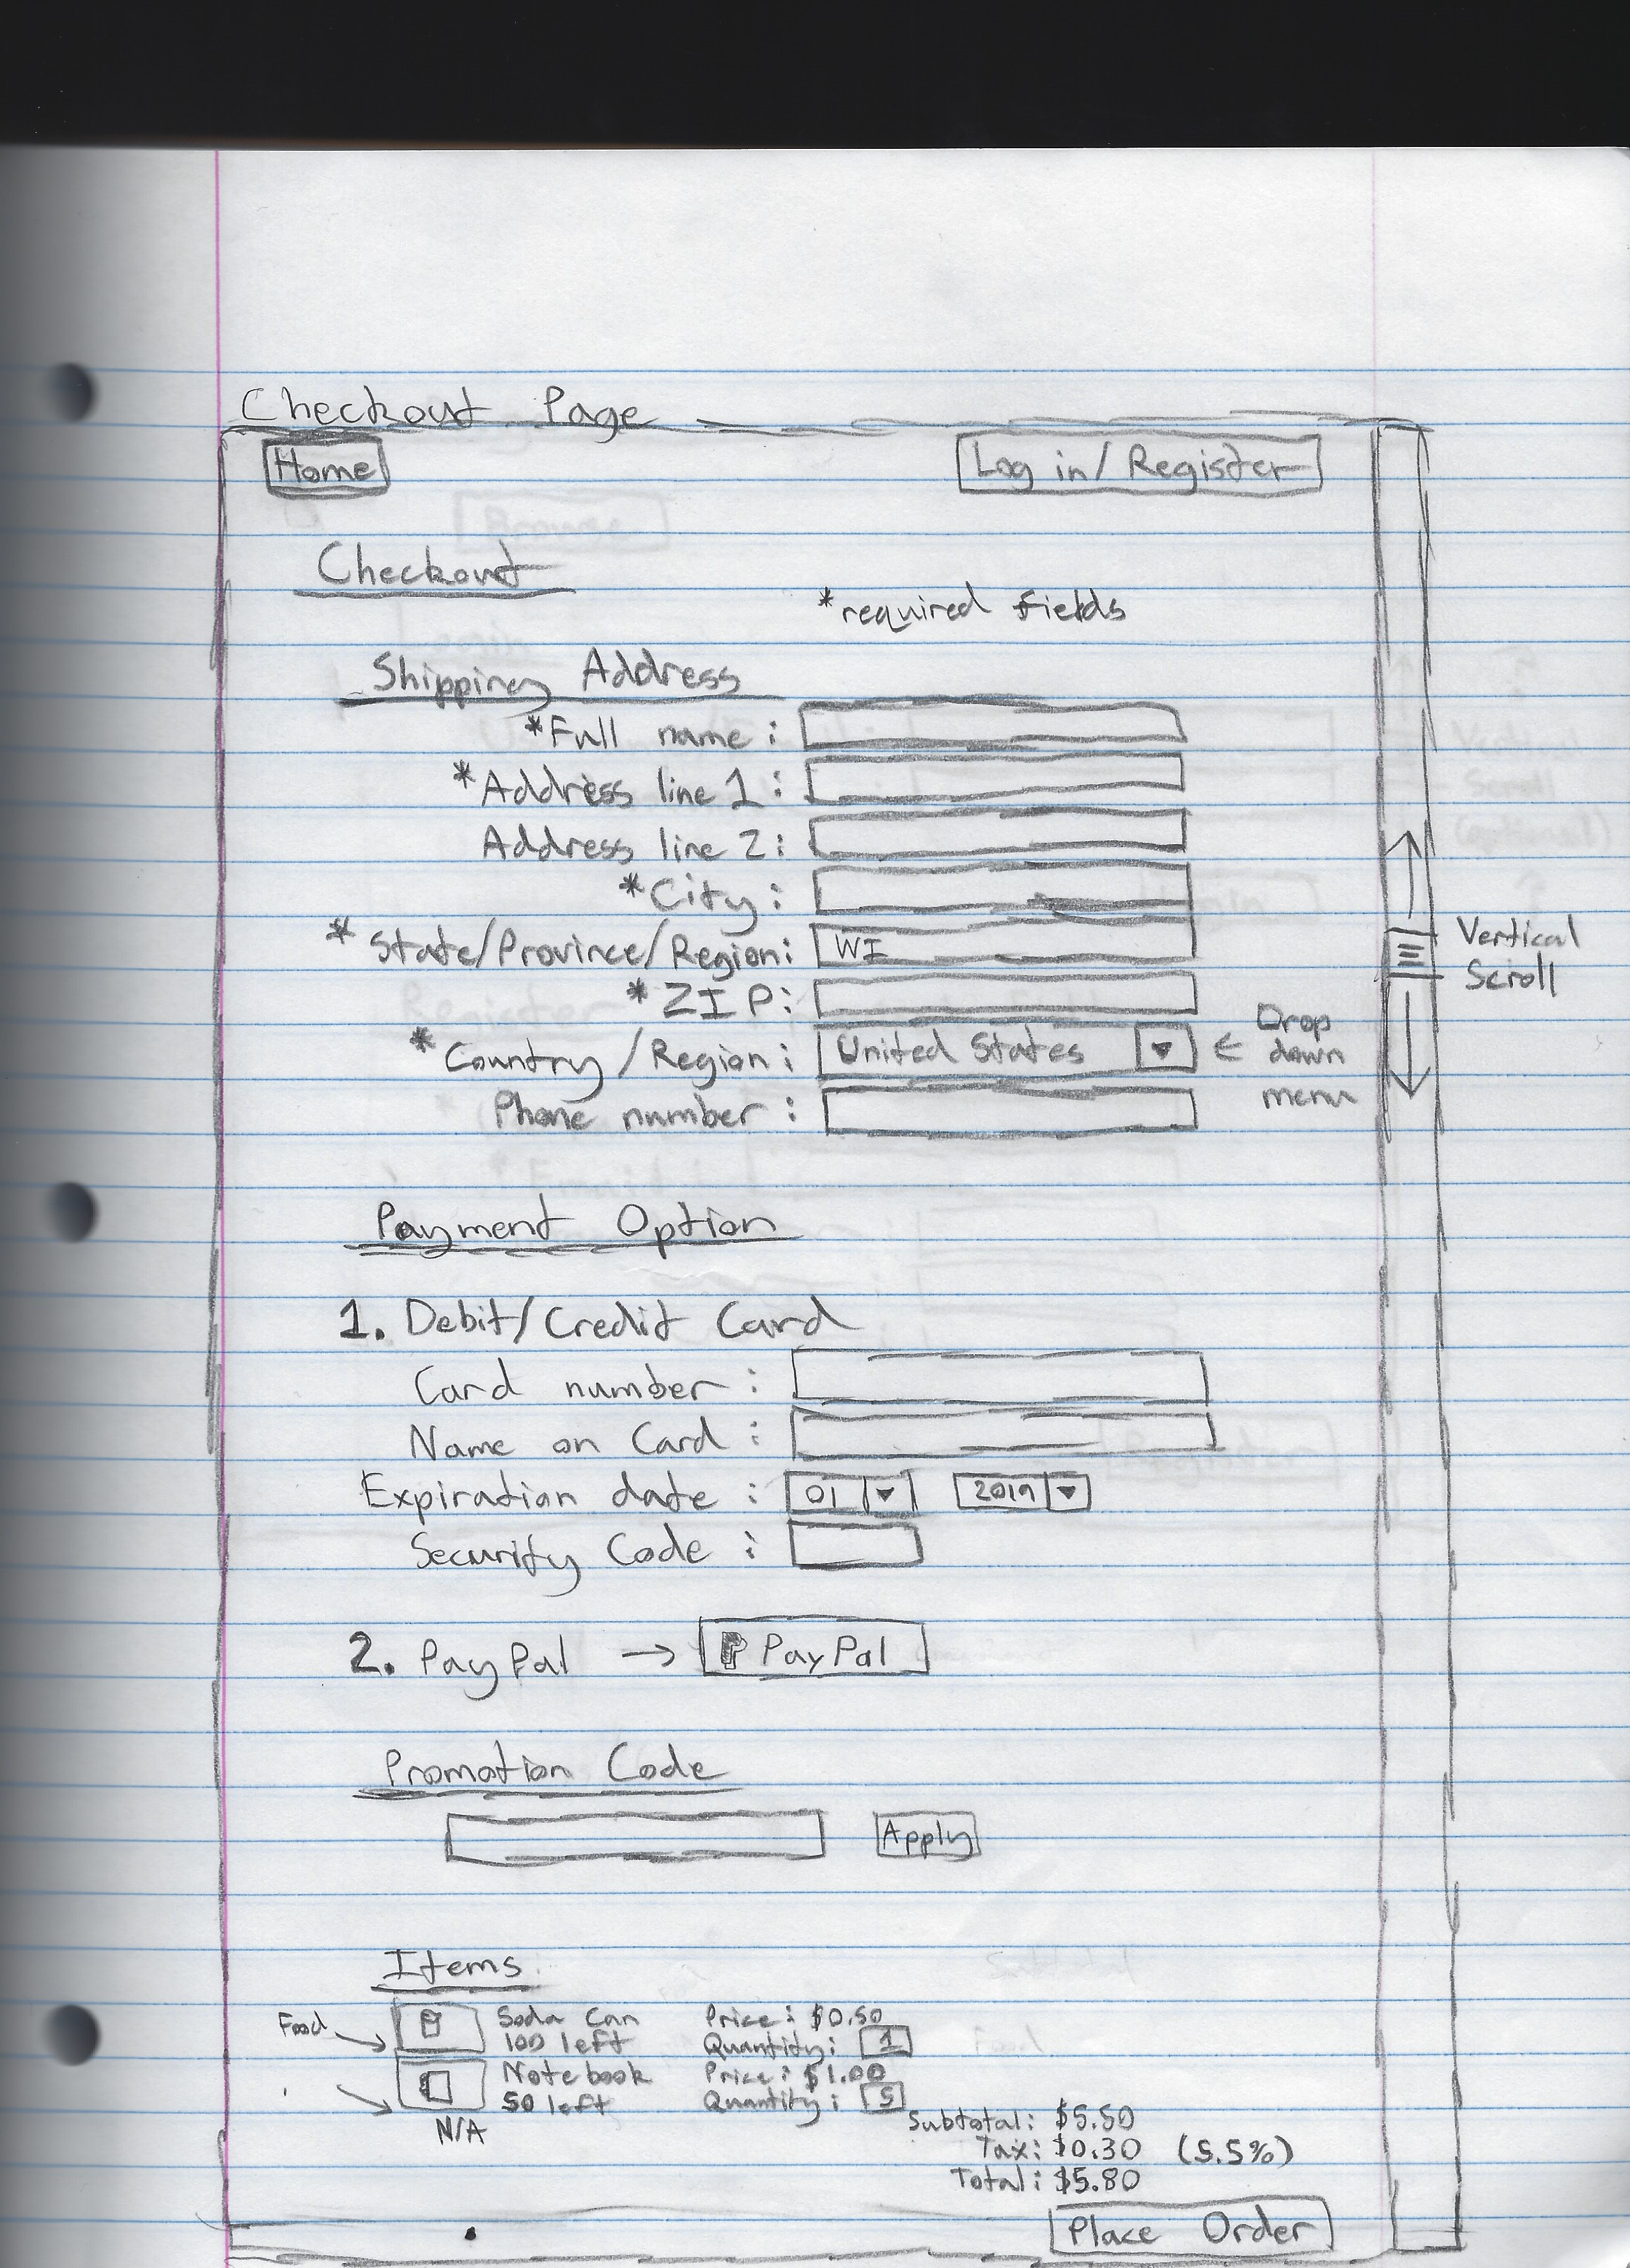 Checkout Page
Home
Log in/Register
Checkout
*required fields
Shipping Address
*Full name:
*Address line 1:
Address line 2:
*City:
*State/Province/Region: WI
*ZIP:
*Country/Region: United States
← Drop down menu
Phone number:
Vertical Scroll
Payment Option
1. Debit/Credit Card
Card number:
Name on Card:
Expiration date: 01 2019
Security Code:
2. PayPal → P PayPal
Promotion Code
Apply
Items
Food
Soda Can Price: $0.50
100 left Quantity: 1
Notebook Price: $1.00
50 left Quantity: 5
N/A
Subtotal: $5.50
Tax: $0.30 (5.5%)
Total: $5.80
Place Order